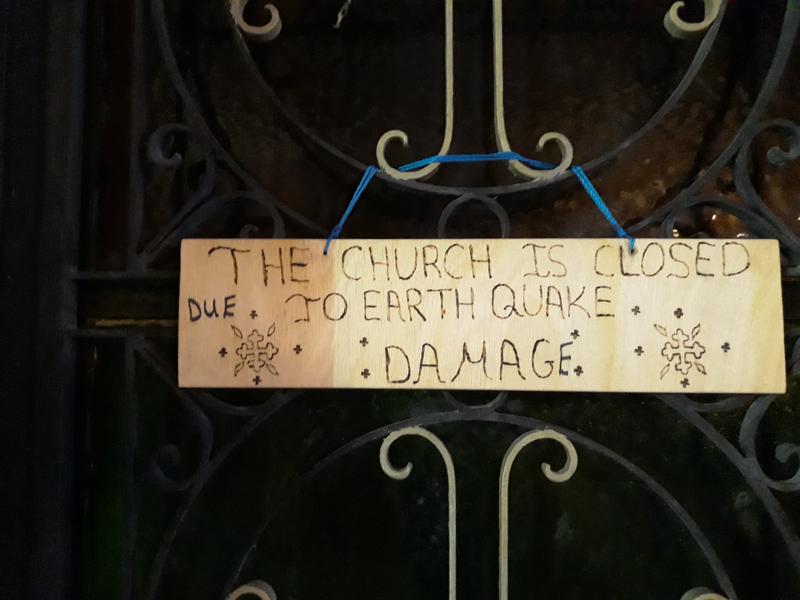 THE CHURCH IS CLOSED
DUE TO EARTH QUAKE
DAMAGE